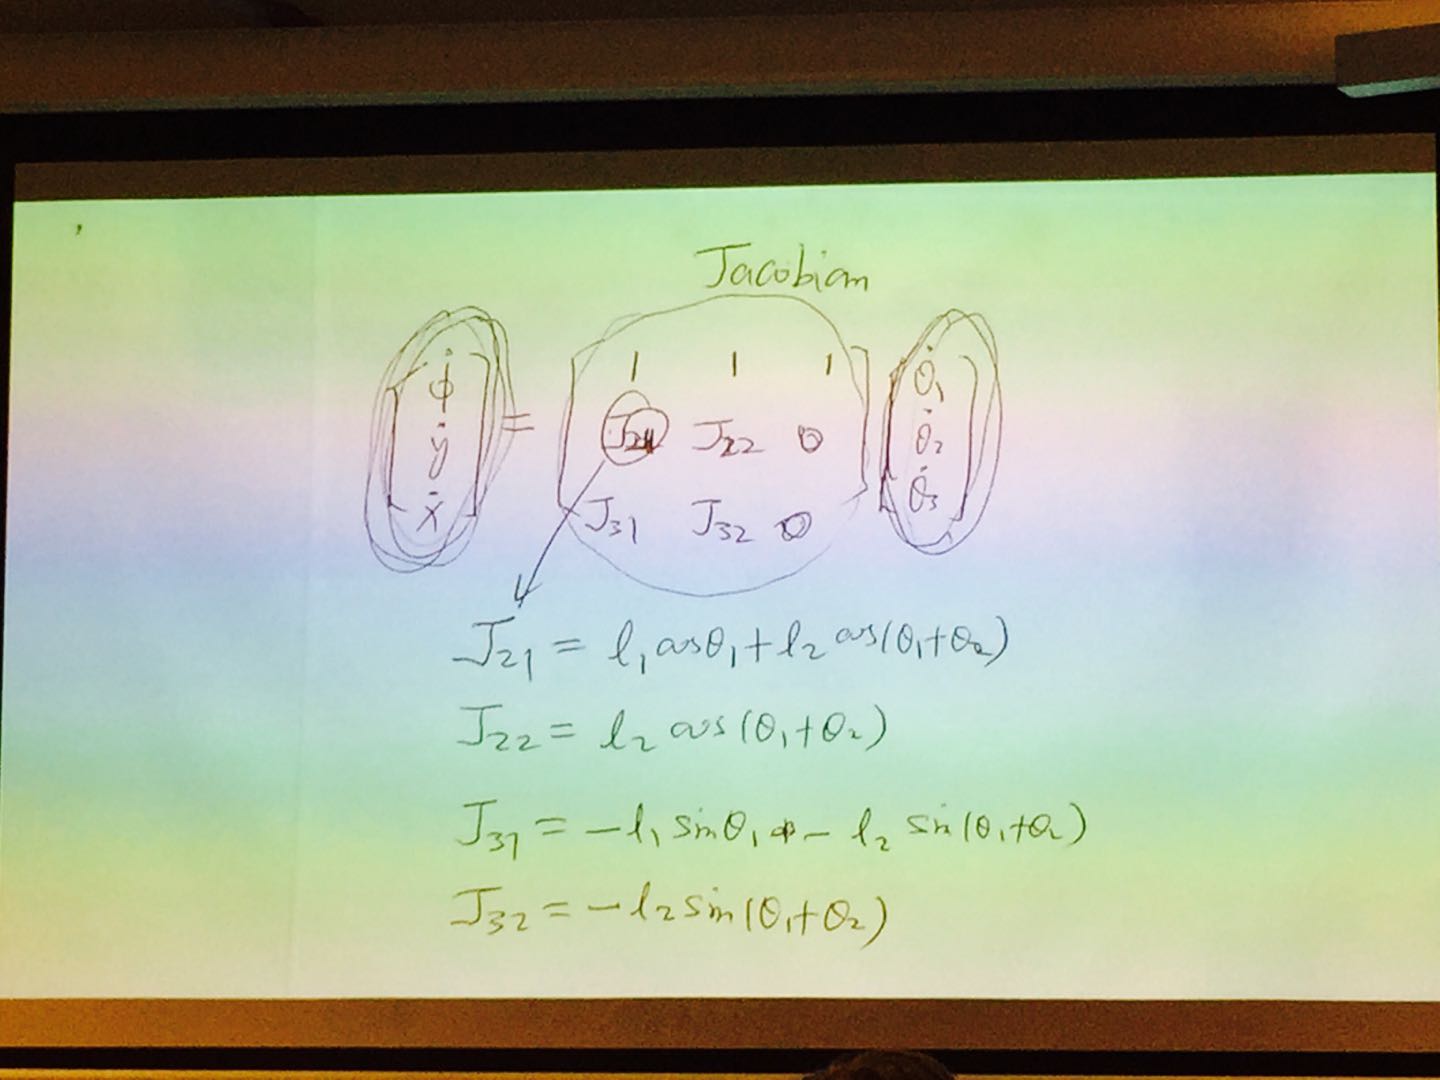 Jacobian
[φ̇ ẏ ẋ] = [1 1 1; J21 J22 0; J31 J32 0] [θ̇1 θ̇2 θ̇3]
J21 = l1 cosθ1 + l2 cos(θ1+θ2)
J22 = l2 cos(θ1+θ2)
J31 = -l1 sinθ1 - l2 sin(θ1+θ2)
J32 = -l2 sin(θ1+θ2)